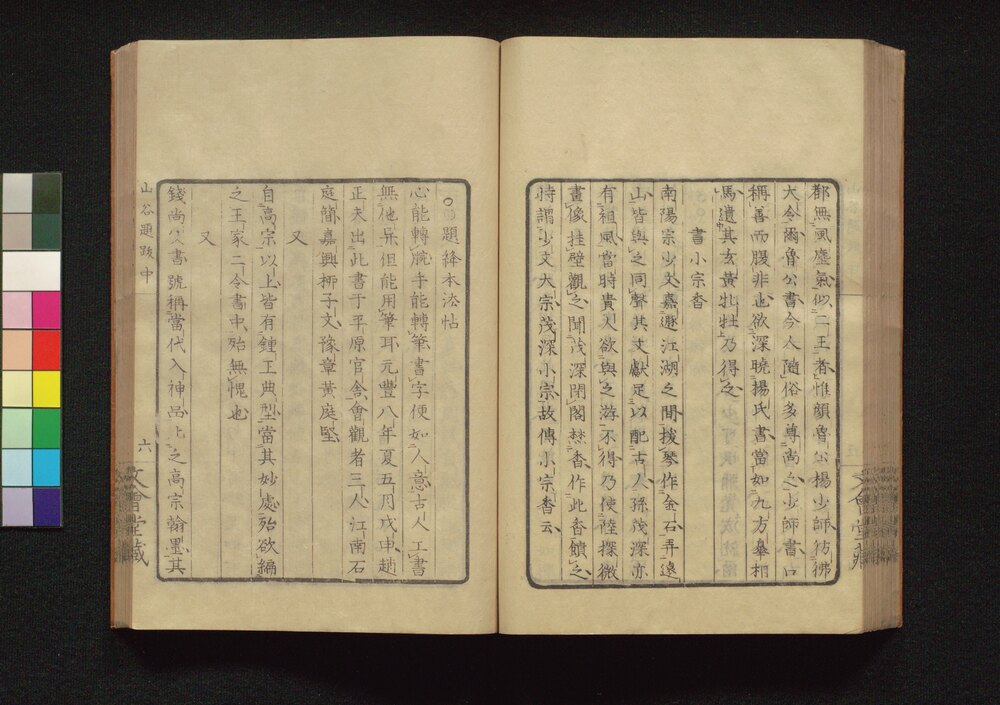 都無風塵氣似二王者惟顏魯公楊少師彷彿
大令爾魯公書今人隨俗多尊尚之少師書口
稱善而腹非也欲深曉楊氏書當如九方皋相
馬遺其玄黃牝牡乃得之
書小宗香
南陽宗少文嘉遯江湖之間援琴作金石弄遠
山皆與之同聲其文獻足以配古人孫茂深亦
有祖風當時貴人欲與之游不得乃使陸探微
畫像挂壁觀之聞茂深閉閣焚香作此香饋之
時謂少文大宗茂深小宗故傳小宗香云
題絳本法帖
心能轉腕手能轉筆書字便如人意古人工書
無他異但能用筆耳元豐八年夏五月戊申趙
正夫出此書于平原官舍會觀者三人江南石
庭簡嘉興柳子文豫章黃庭堅
又
自高宗以上皆有鍾王典型當其妙處殆欲編
之王家二令書中殆無愧也
又
錢尚父書號稱當代入神品比之高宗翰墨其
山谷題跋中
六
文會堂藏